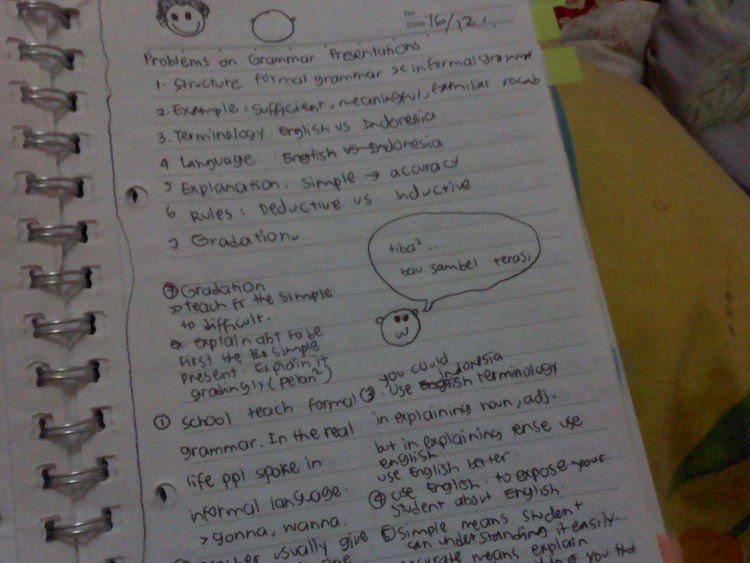 No
Date 16/12
Problems on Grammar Presentations
1. Structure formal grammar >< informal grammar
2. Example: sufficient, meaningful, familiar vocab
3. Terminology: English vs Indonesia
4 Language : English vs Indonesia
5 Explanation: Simple → accuracy
6 Rules: Deductive vs. Inductive
7 Gradation
tiba² ..
bau sambel terasi
⑦ Gradation
> teach fr the simple
to difficult..
ex explain abt to be
first the the simple
present. Explain it
gradingly (pelan²)
① School teach formal
grammar. In the real
life ppl spoke in
informal language.
> gonna, wanna.
usually give
③ you could
use English Indonesia terminology
in explaining noun, adj.
but in explaining tense use
english
use English better.
④ use English. to expose your
student about English.
⑤ Simple means student
can understanding it easily
accurate means explain
you that